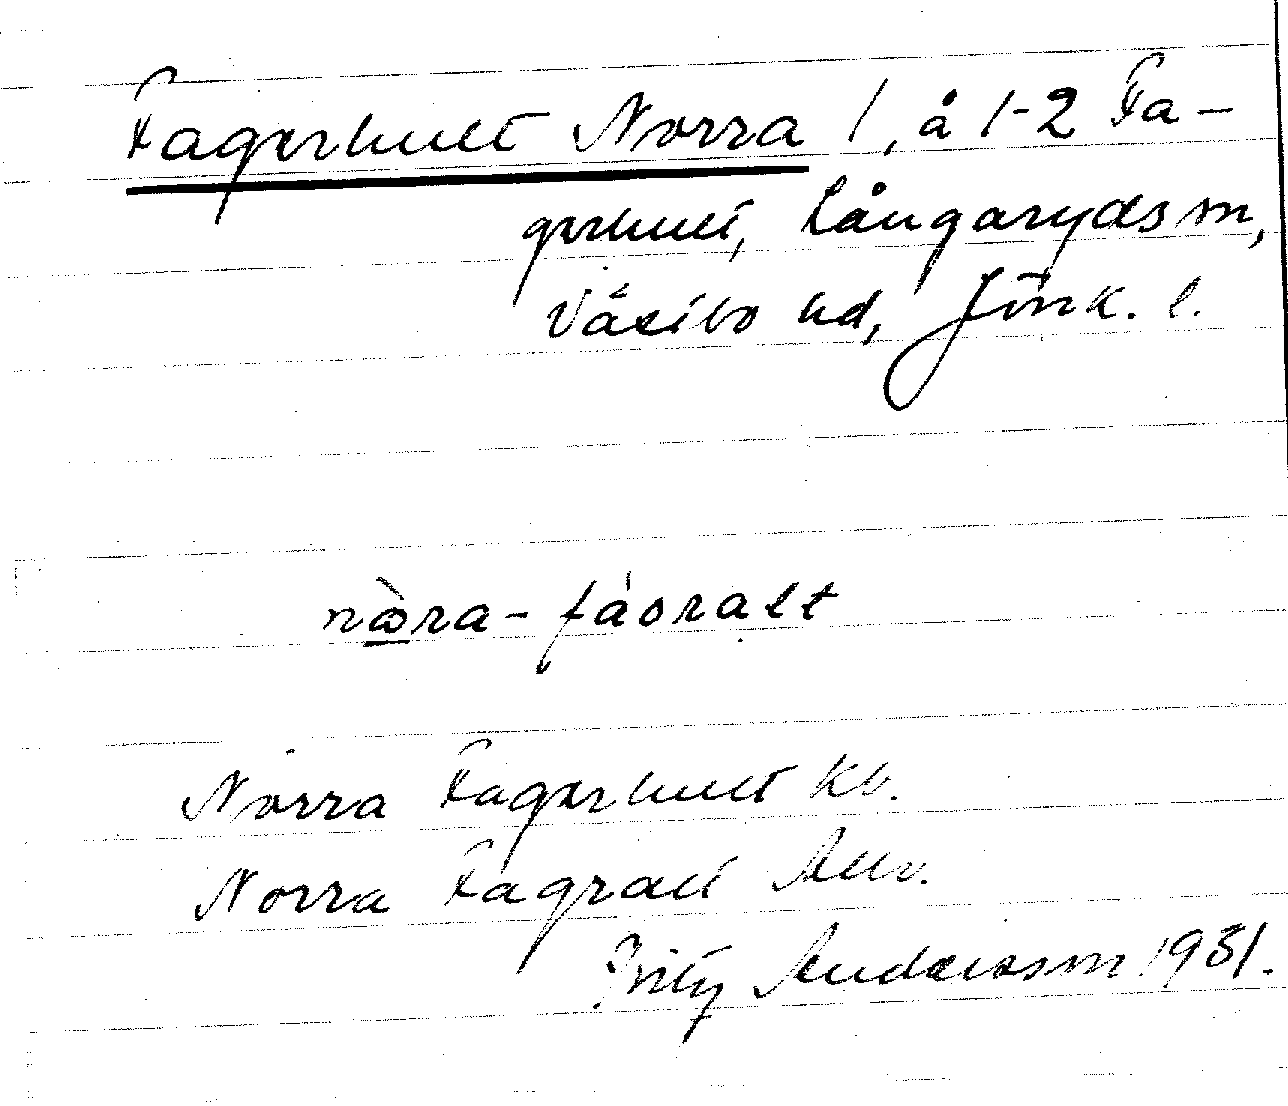 Fagerhult Norra l, å 1-2 Fa-
gerhult, Långaryds sn,
Västbo hd, Jönk. l.
nòra-fáoralt
Norra Fagerhult kb.
Norra Fagralt Allv.
Fritz Andersson 1931.